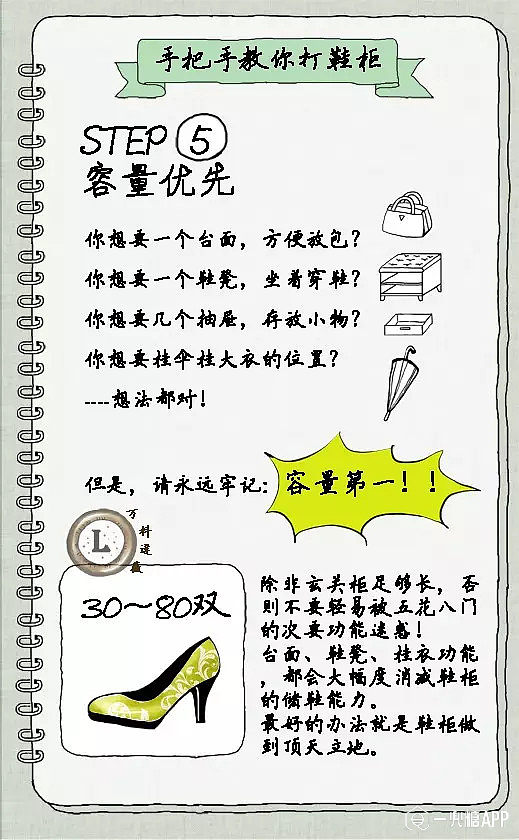 手把手教你打鞋柜
STEP 5
容量优先
你想要一个台面，方便放包？
你想要一个鞋凳，坐着穿鞋？
你想要几个抽屉，存放小物？
你想要挂伞挂大衣的位置？
----想法都对！
但是，请永远牢记：容量第一！！
L
万料逻盘
30～80双
除非玄关柜足够长，否
则不要轻易被五花八门
的次要功能迷惑！
台面、鞋凳、挂衣功能
，都会大幅度消减鞋柜
的储鞋能力。
最好的办法就是鞋柜做
到顶天立地。
一兜糖APP